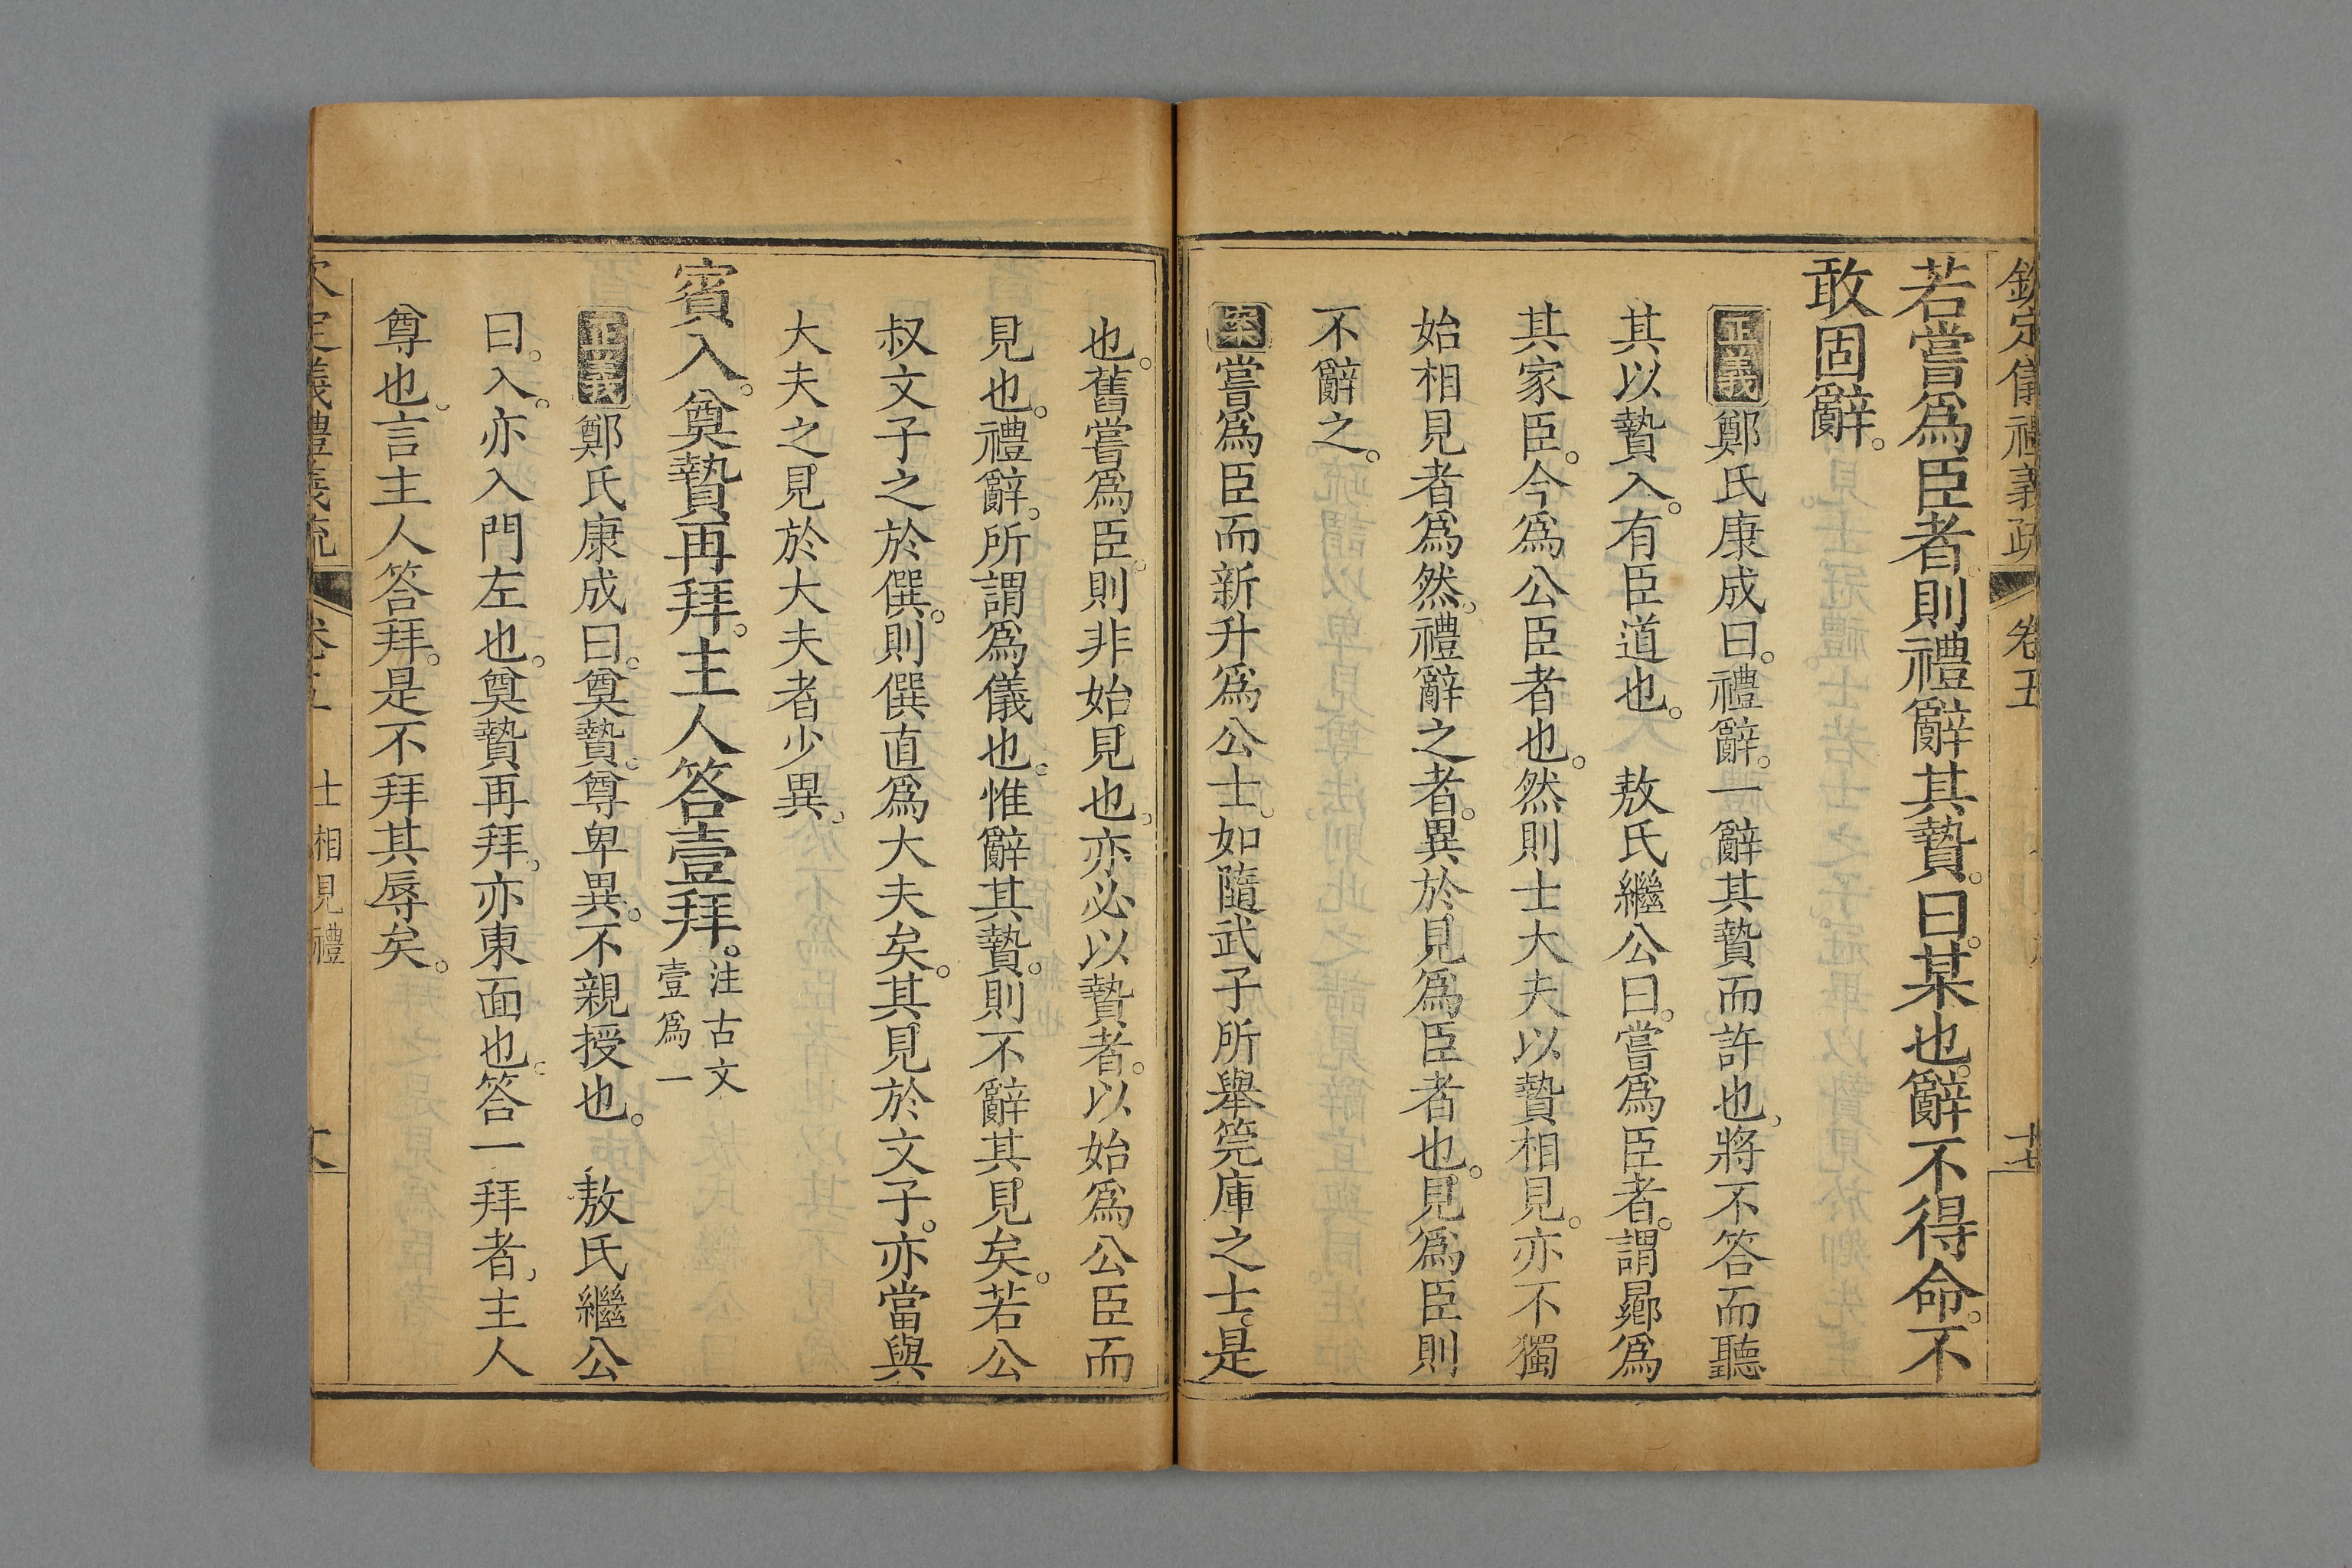 欽定儀禮義疏 卷五
若嘗爲臣者則禮辭其贄。曰。某也。辭不得命。不
敢固辭。
正義鄭氏康成曰。禮辭。一辭其贄而許也。將不答而聽
其以贄入。有臣道也。 敖氏繼公曰。嘗爲臣者。謂曏爲
其家臣。今爲公臣者也。然則士大夫以贄相見。亦不獨
始相見者爲然。禮辭之者。異於見爲臣者也。見爲臣則
不辭之。
案嘗爲臣而新升爲公士。如隨武子所舉筦庫之士。是
也。舊嘗爲臣。則非始見也。亦必以贄者。以始爲公臣而
見也。禮辭。所謂爲儀也。惟辭其贄。則不辭其見矣。若公
叔文子之於僎。則僎直爲大夫矣。其見於文子。亦當與
大夫之見於大夫者少異。
賓入。奠贄再拜。主人答壹拜。注古文
壹爲一
正義鄭氏康成曰。奠贄。尊卑異。不親授也。 敖氏繼公
曰。入。亦入門左也。奠贄再拜。亦東面也。答一拜者。主人
尊也。言主人答拜。是不拜其辱矣。
欽定儀禮義疏 卷五 士相見禮